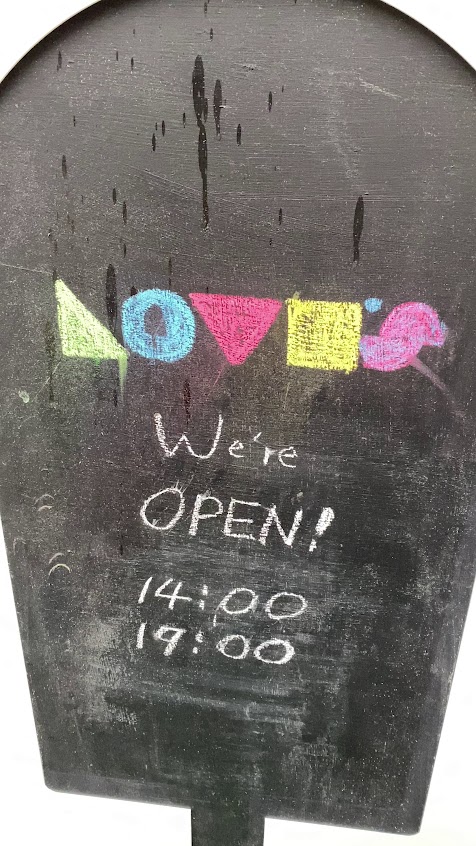 LOVE'S
We're
OPEN!
14:00
19:00